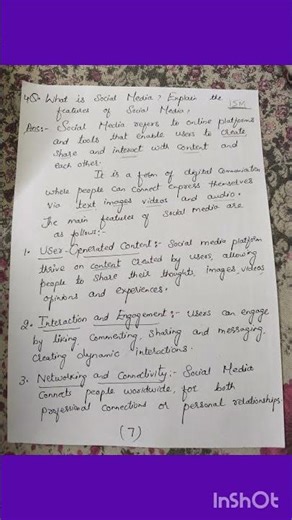 4Q. What is Social Media? Explain the
features of Social Media? 15M
Ans:- Social Media refers to online platforms
and tools that enable users to create,
share and interact with content and
each other.
It is a form of digital Communication
where people can connect express themselves
via text images videos and audio.
The main features of social media are
as follows:-
1. User-Generated Content:- Social media platform
thrive on content created by users, allowing
people to share their thoughts, images, videos
opinions and experiences.
2. Interaction and Engagement:- Users can engage
by liking, Commenting, Sharing and messaging,
creating dynamic interactions.
3. Networking and Connectivity:- Social Media
Connects people worldwide, for both
professional connections or personal relationships.
(7)
InShOt